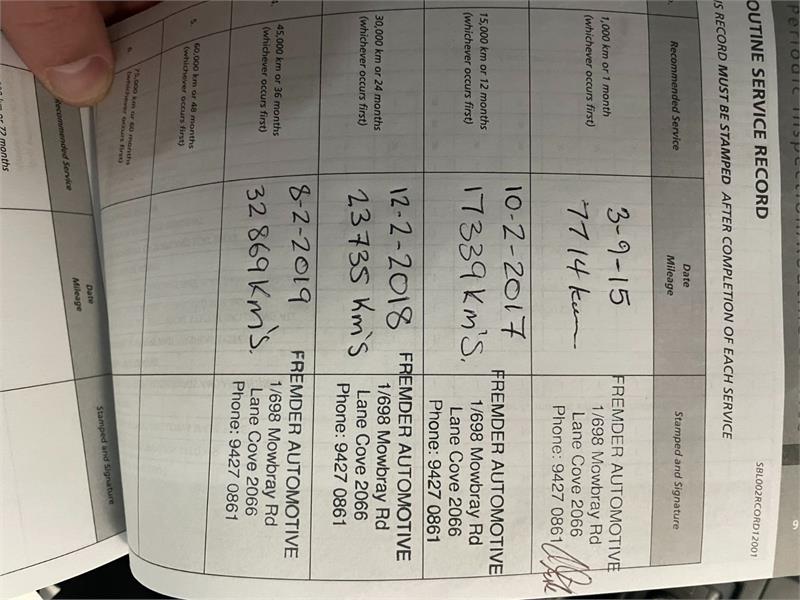 OUTINE SERVICE RECORD
SBL002RCORD12001
IS RECORD MUST BE STAMPED AFTER COMPLETION OF EACH SERVICE
Recommended Service
Date
Mileage
Stamped and Signature
1,000 km or 1 month
(whichever occurs first)
3-9-15
7714 km
FREMDER AUTOMOTIVE
1/698 Mowbray Rd
Lane Cove 2066
Phone: 9427 0861
15,000 km or 12 months
(whichever occurs first)
10-2-2017
17339 Km's.
FREMDER AUTOMOTIVE
1/698 Mowbray Rd
Lane Cove 2066
Phone: 9427 0861
30,000 km or 24 months
(whichever occurs first)
12-2-2018
23735 Km's
FREMDER AUTOMOTIVE
1/698 Mowbray Rd
Lane Cove 2066
Phone: 9427 0861
45,000 km or 36 months
(whichever occurs first)
8-2-2019
32869 Km's.
FREMDER AUTOMOTIVE
1/698 Mowbray Rd
Lane Cove 2066
Phone: 9427 0861
5.
60,000 km or 48 months
(whichever occurs first)
6.
75,000 km or 60 months
(whichever occurs first)
Recommended Service
Date
Mileage
Stamped and Signature
km or 72 months